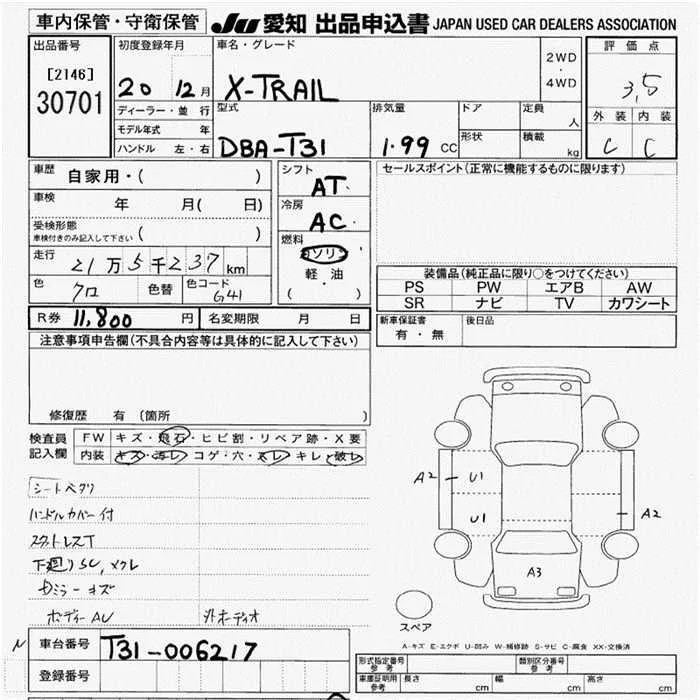 車内保管・守衛保管
JU 愛知 出品申込書 JAPAN USED CAR DEALERS ASSOCIATION
出品番号
[2146]
30701
初度登録年月
20 12月
ディーラー・並 行
モデル年式 年
ハンドル 左・右
車名・グレード
X-TRAIL
2WD
・
4WD
型式
DBA-T31
排気量
1.99 CC
ドア
形状
定員
人
積載
kg
評 価 点
3.5
外 装 内 装
C C
車歴
自家用・( )
車検
年 月( 日)
受検形態
車検付きのみ記入して下さい ( )
走行
21万5千237km
色
クロ
色替
色コード
G41
シフト
AT
冷房
AC
燃料
ガソリン
軽・油
( ・ )
セールスポイント(正常に機能するものに限ります)
装備品(純正品に限り○をつけてください)
PS PW エアB AW
SR ナビ TV カワシート
R券 11,800 円
名変期限 月 日
新車保証書
有・無
後日品
注意事項申告欄(不具合内容等は具体的に記入して下さい)
修復歴 有 (箇所 )
検査員
記入欄
FW キズ・飛石・ヒビ割・リペア跡・X要
内装 キズ・汚レ・コゲ・穴・スレ・キレ・破レ
シートヘタリ
ハンドルカバー付
スタットレスT
下廻りSC,メクレ
Dミラーキズ
ボディーAU
外オーディオ
A2
U1
U1
A2
A3
スペア
A-キズ E-エクボ U-凹み W-補修跡 S-サビ C-腐食 XX-交換済
N
車台番号
T31-006217
登録番号
形式指定番号
参 考
類別区分番号
参 考
車庫証明用
参考
長さ cm
幅 cm
高さ cm